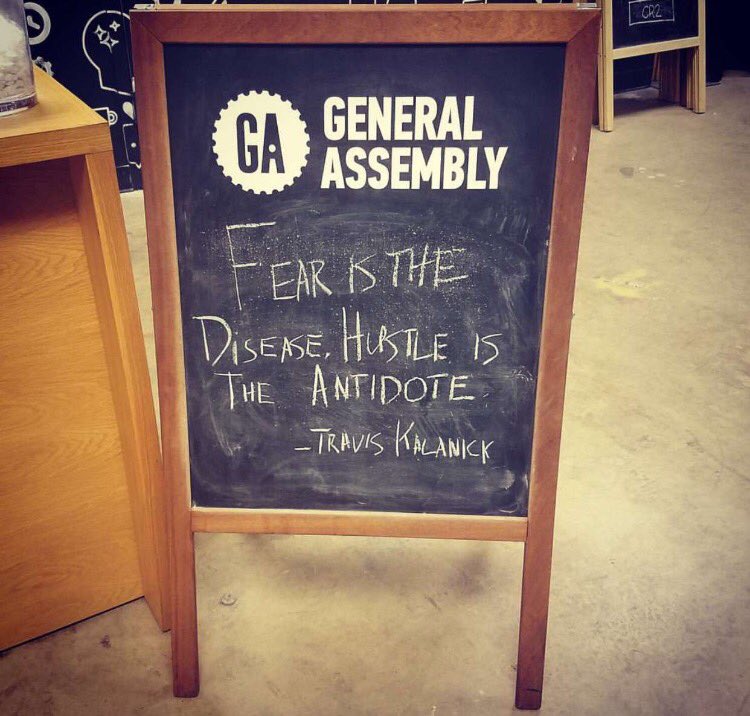 CR2
GA
GENERAL
ASSEMBLY
FEAR IS THE
DISEASE. HUSTLE IS
THE ANTIDOTE.
-TRAVIS KALANICK